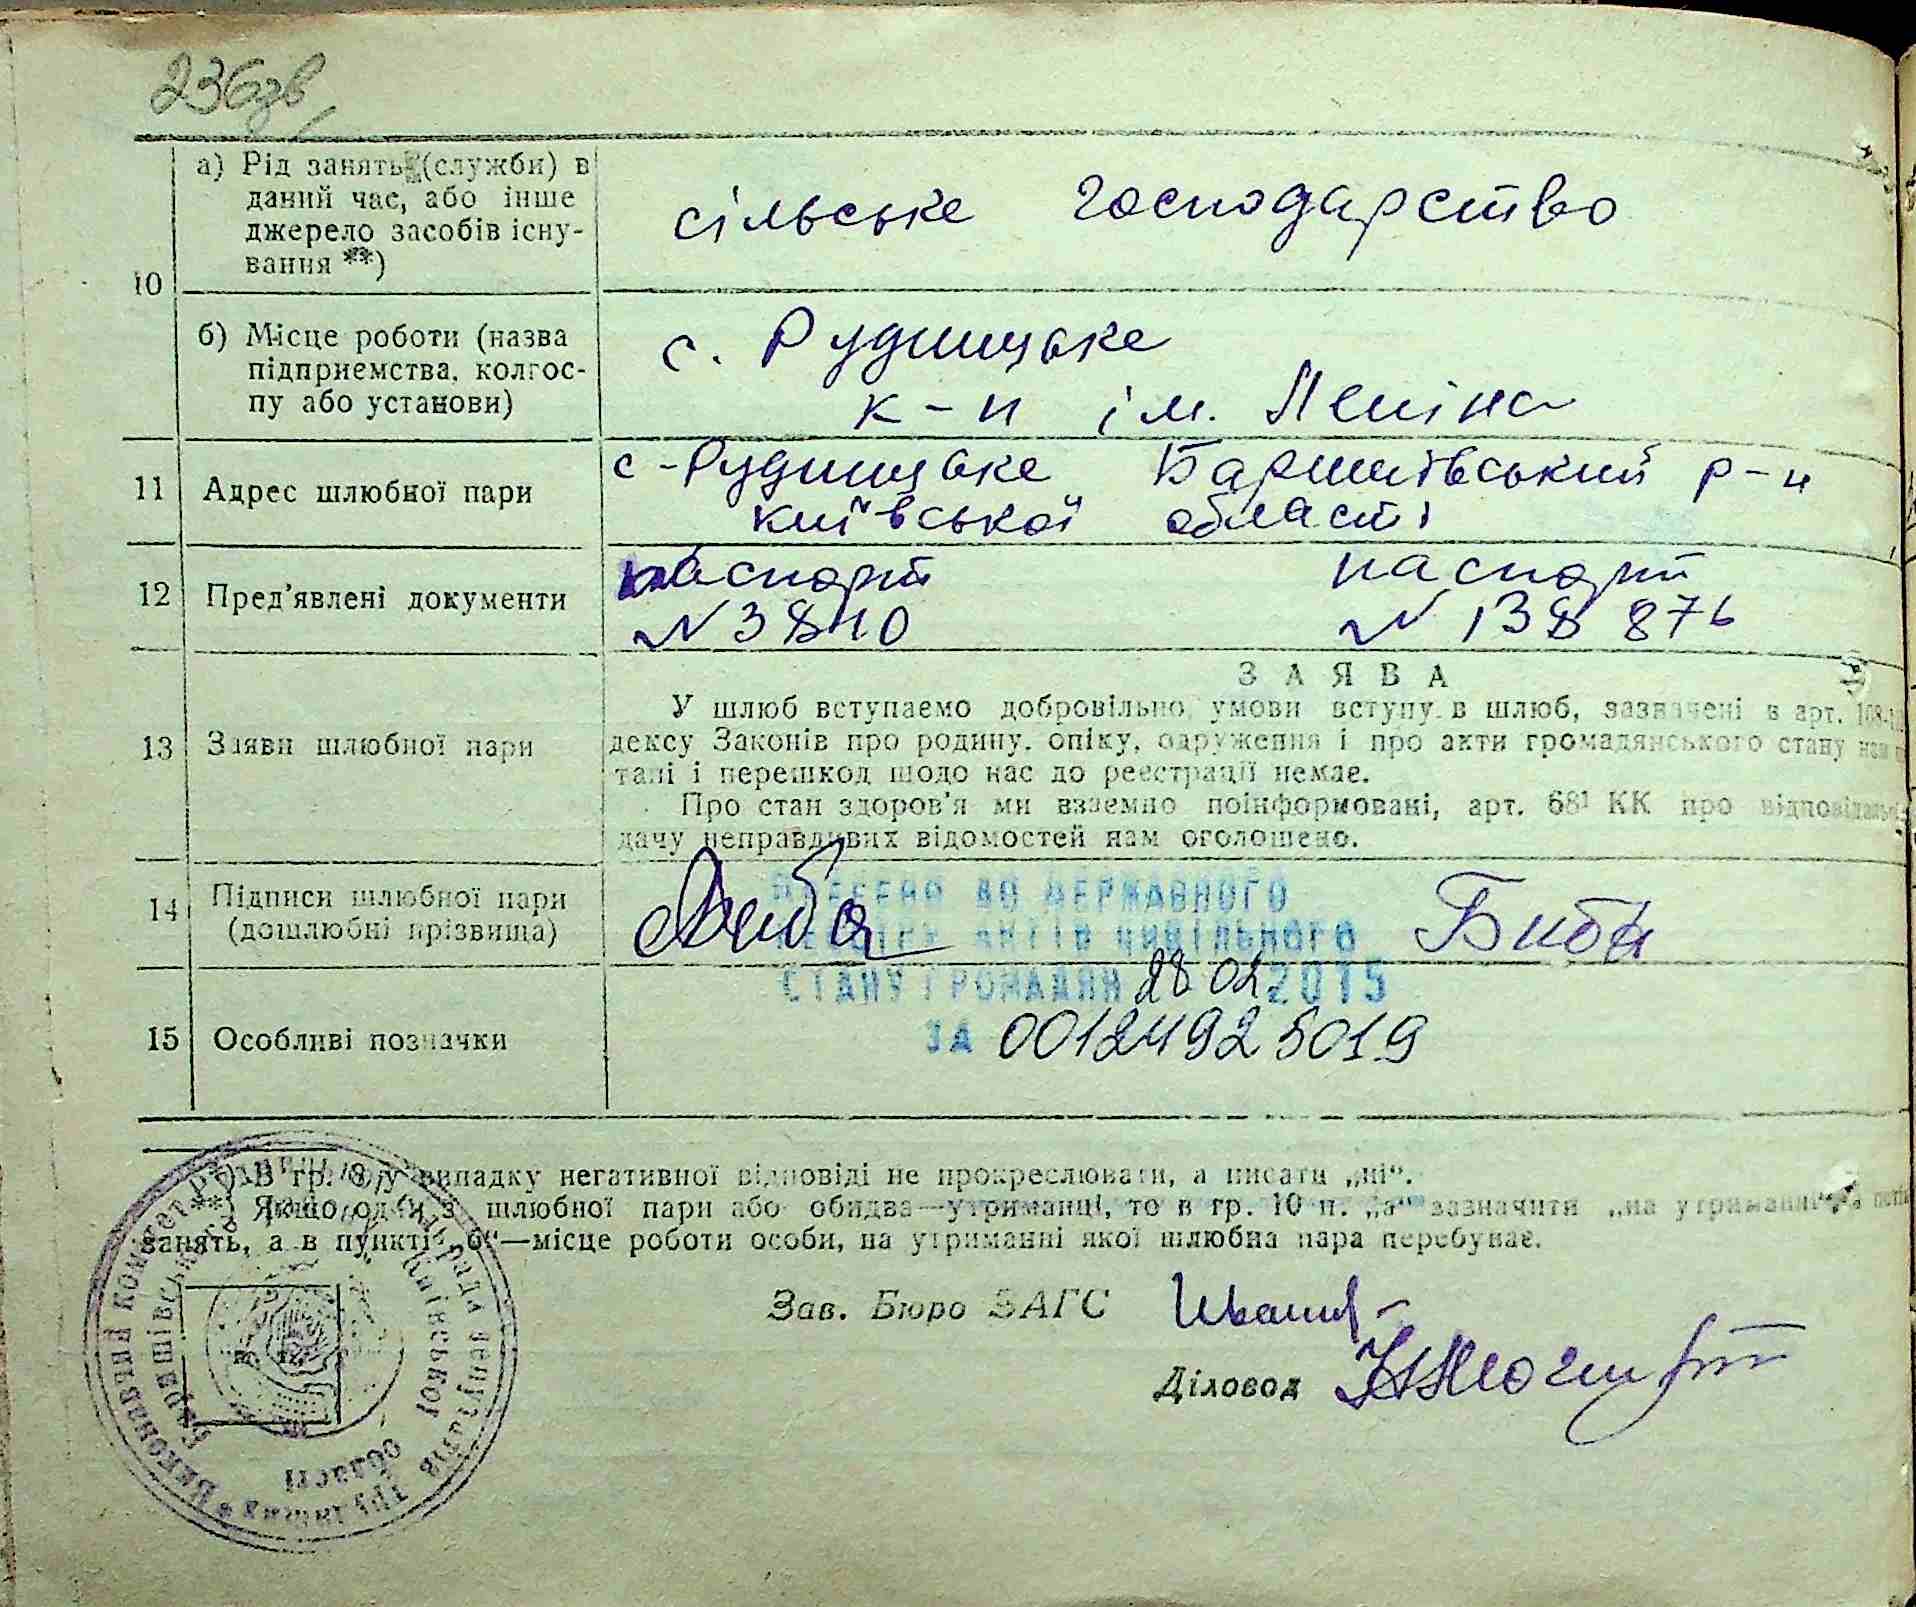 236зв
10
а) Рід занять (служби) в
даний час, або інше
джерело засобів існу-
вання **)
сільське господарство
б) Місце роботи (назва
підприємства, колгос-
пу або установи)
с. Рудницьке
к-п ім. Леніна
11
Адрес шлюбної пари
с-Рудницьке Баришівський р-н
київської області
12
Пред'явлені документи
паспорт паспорт
N 3810 N 138 876
13
Заяви шлюбної пари
ЗАЯВА
У шлюб вступаємо добровільно, умови вступу в шлюб, зазначені в арт.
дексу Законів про родину, опіку, одруження і про акти громадянського стану нам
тані і перешкод щодо нас до реєстрації немає.
Про стан здоров'я ми взаємно поінформовані, арт. 68¹ КК про відповідальн
дачу неправдивих відомостей нам оголошено.
14
Підписи шлюбної пари
(дошлюбні прізвища)
Биба
ВНЕСЕНО ДО ДЕРЖАВНОГО
РЕЄСТРУ АКТІВ ЦИВІЛЬНОГО
СТАНУ ГРОМАДЯН 28 02 2015
ЗА 00124925019
15
Особливі позначки
*) В гр. 8 у випадку негативної відповіді не прокреслювати, а писати „ні“.
**) Якщо один з шлюбної пари або обидва—утриманці, то в гр. 10 п. „а“ зазначити „на утриманні“,
занять, а в пункті „б“—місце роботи особи, на утриманні якої шлюбна пара перебуває.
Зав. Бюро ЗАГС
Діловод
Виконавчий комітет районна рада депутатів трудящих
Баришівського району Київської області